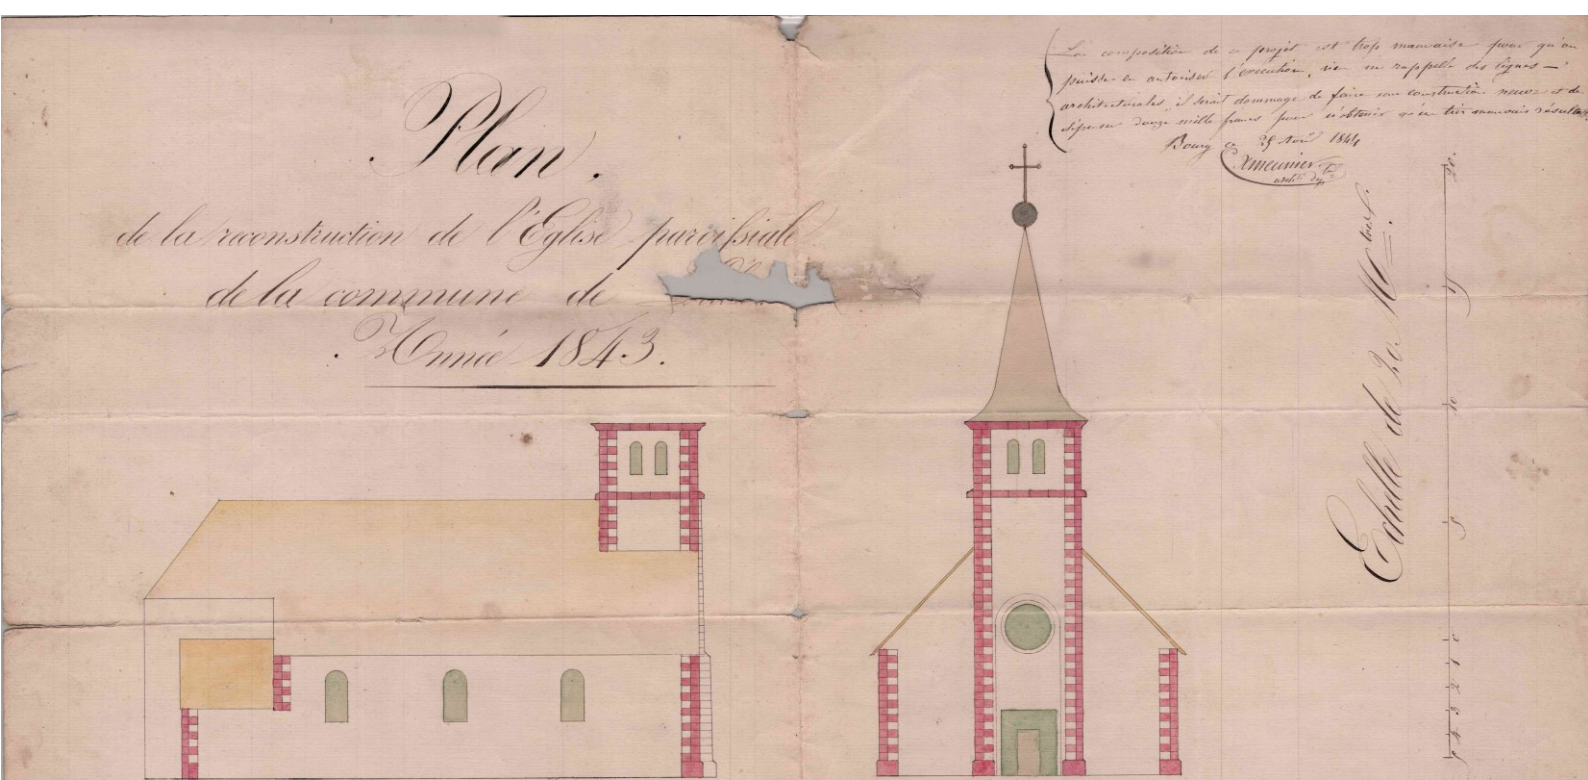 Plan.
de la reconstruction de l'Eglise paroissiale
de la commune de
Année 1843.
La composition de ce projet est trop mauvaise pour qu'on
puisse en autoriser l'execution, rien ne rappelle des lignes —
architecturales, il serait dommage de faire une construction neuve et de
dépenser douze mille francs pour n'obtenir qu'un très mauvais résultat.
Bourg ce 25 1844
Xmeunier
archte
Echelle de 20. M
5 4 3 2 1 0 5 10 15 20.